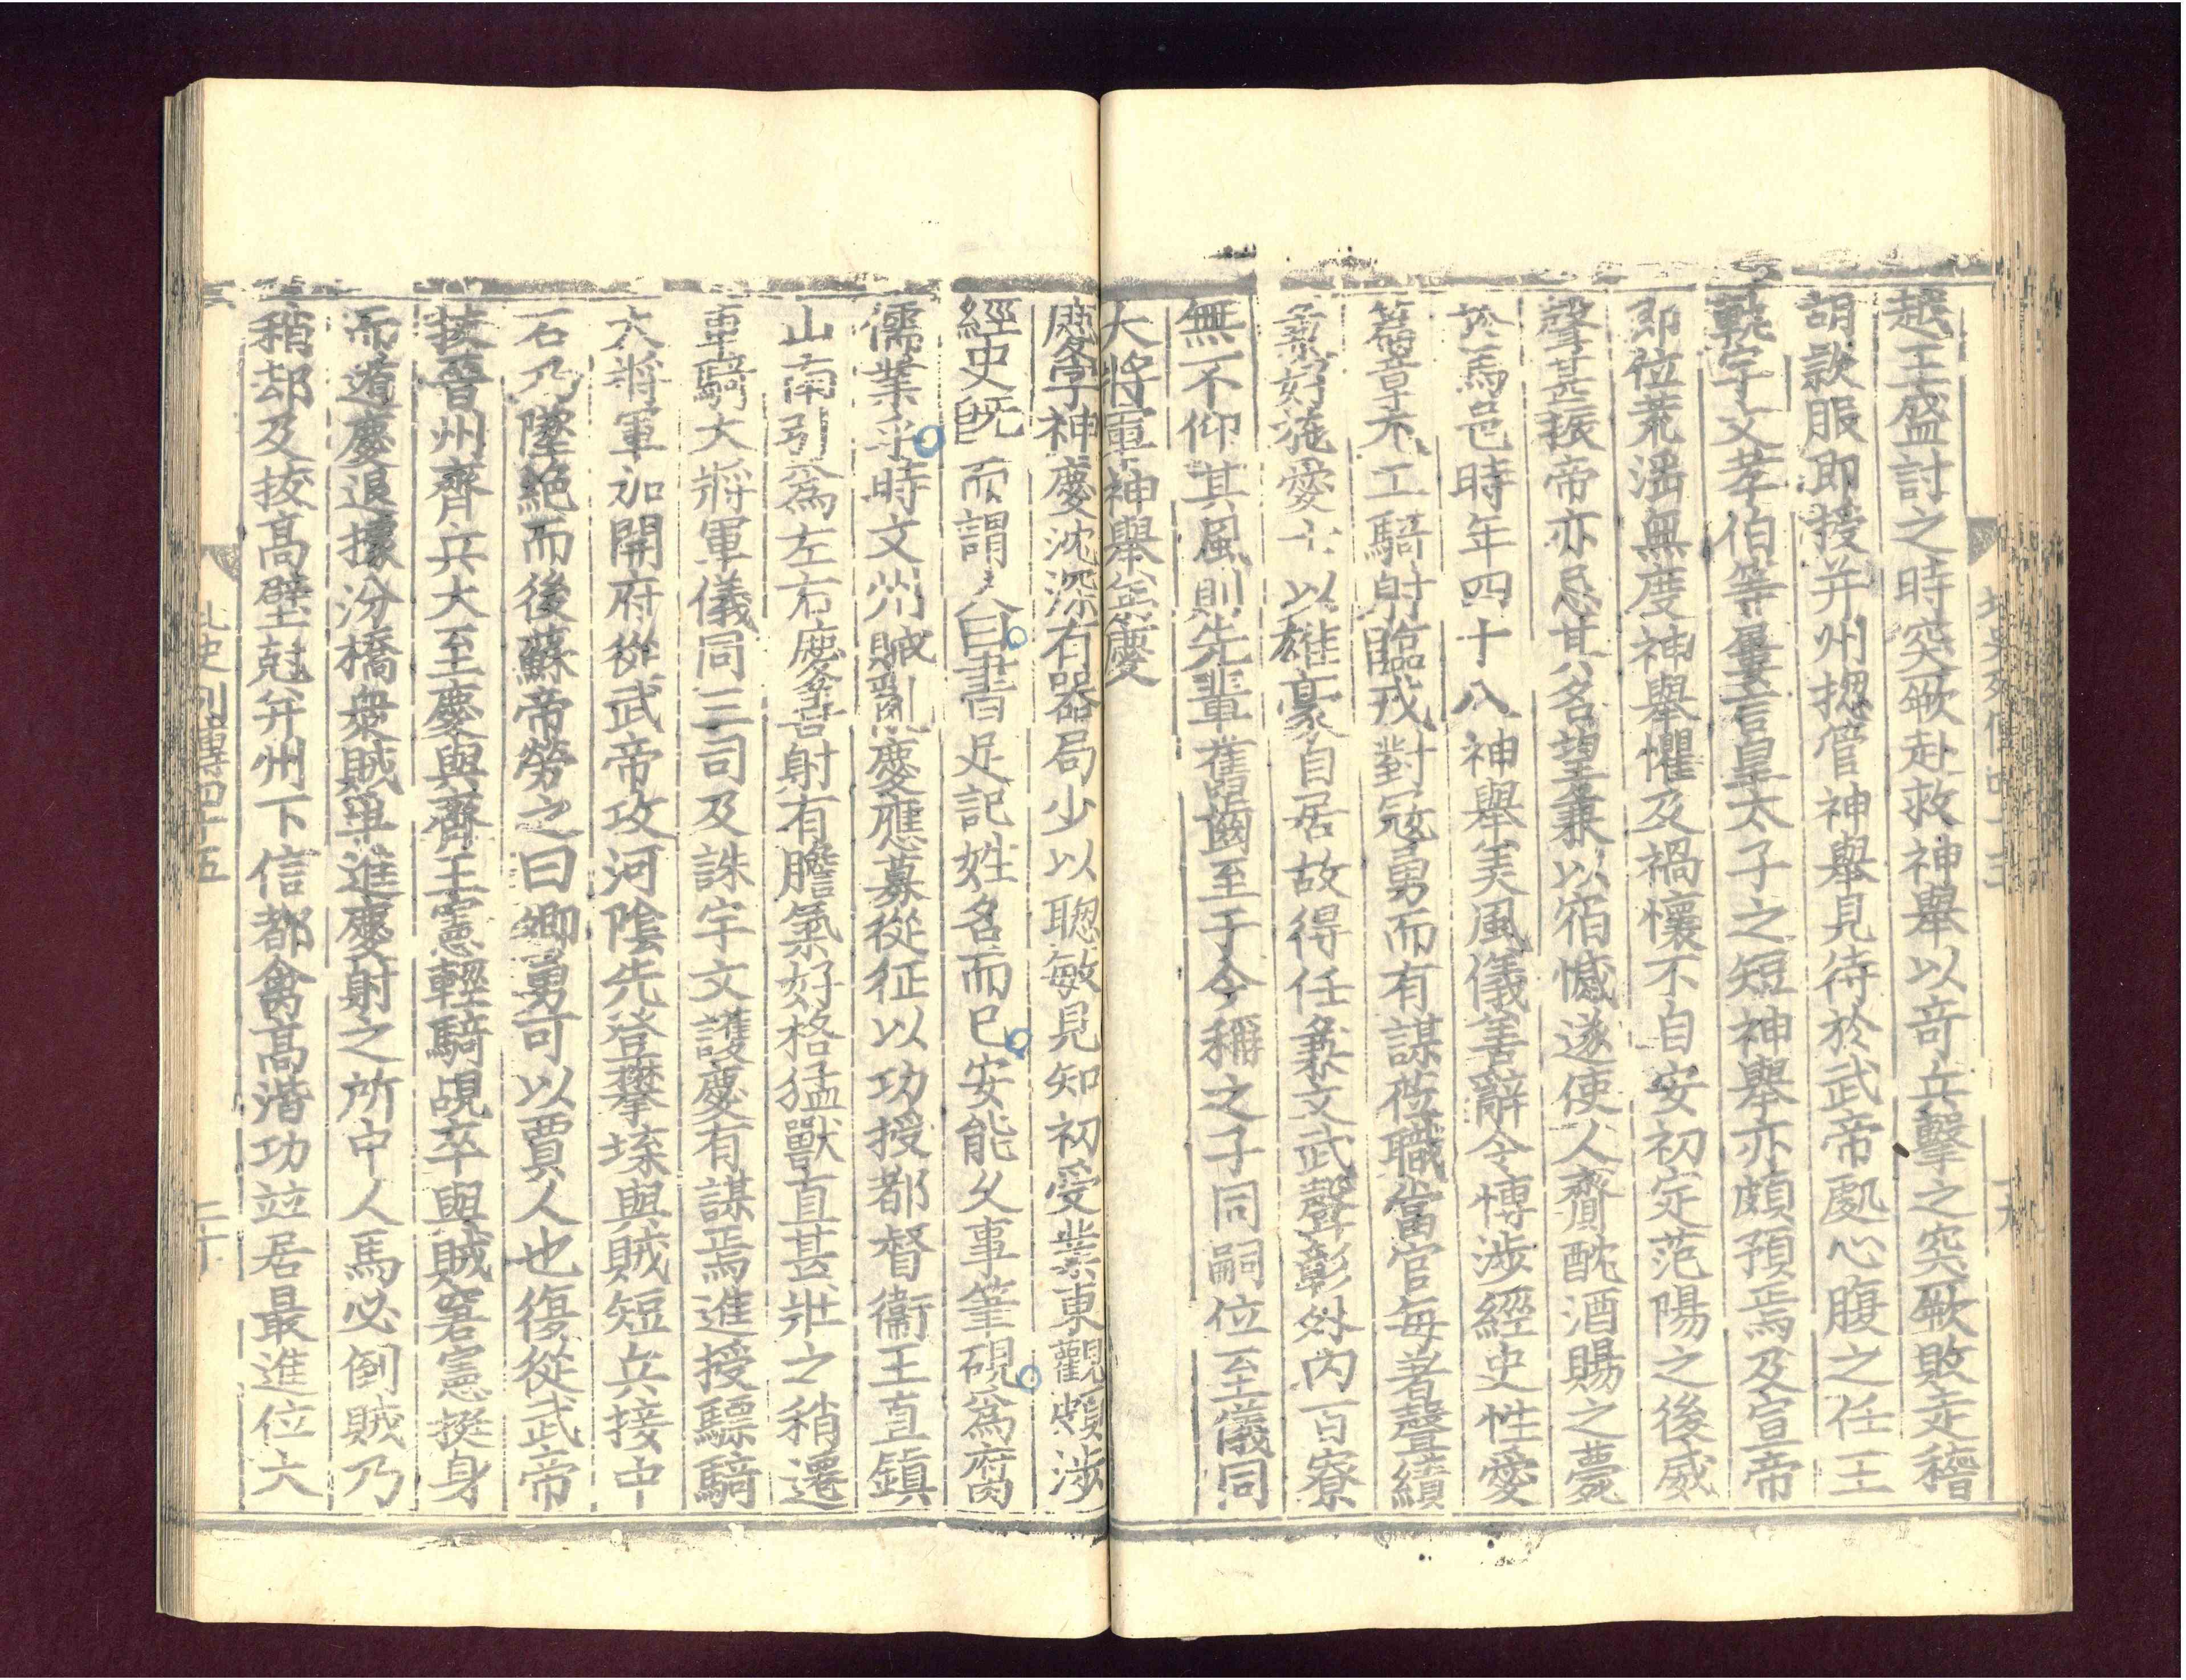 越王盛討之時突厥赴救神舉以奇兵擊之突厥敗走稽
胡款服即授并州摠管神舉見待於武帝處心腹之任王
軌宇文孝伯等屢言皇太子之短神舉亦頗預焉及宣帝
即位荒淫無度神舉懼及禍懷不自安初定范陽之後威
聲甚振帝亦忌其名望兼以宿憾遂使人齎酖酒賜之薨
於馬邑時年四十八神舉美風儀善辭令博涉經史性愛
篇章尤工騎射臨戎對寇勇而有謀莅職當官每著聲績
兼好施愛士以雄豪自居故得任兼文武聲彰外內百寮
無不仰其風則先輩舊齒至于今稱之子同嗣位至儀同
大將軍神舉弟慶
慶字神慶沈深有器局少以聰敏見知初受業東觀頗涉
經史既而謂人曰書足記姓名而已安能久事筆硯爲腐
儒業乎時文州賊亂慶應募從征以功授都督衞王直鎮
山南引爲左右慶善射有膽氣好格猛獸直甚壯之稍遷
車騎大將軍儀同三司及誅宇文護慶有謀焉進授驃騎
大將軍加開府從武帝攻河陰先登攀堞與賊短兵接中
石乃墜絶而後蘇帝勞之曰卿勇可以賈人也復從武帝
拔晉州齊兵大至慶與齊王憲輕騎覘卒與賊窘憲挺身
而遁慶退據汾橋衆賊爭進慶射之所中人馬必倒賊乃
稍却及拔高壁尅并州下信都禽高湝功竝居最進位大
北史列傳四十五